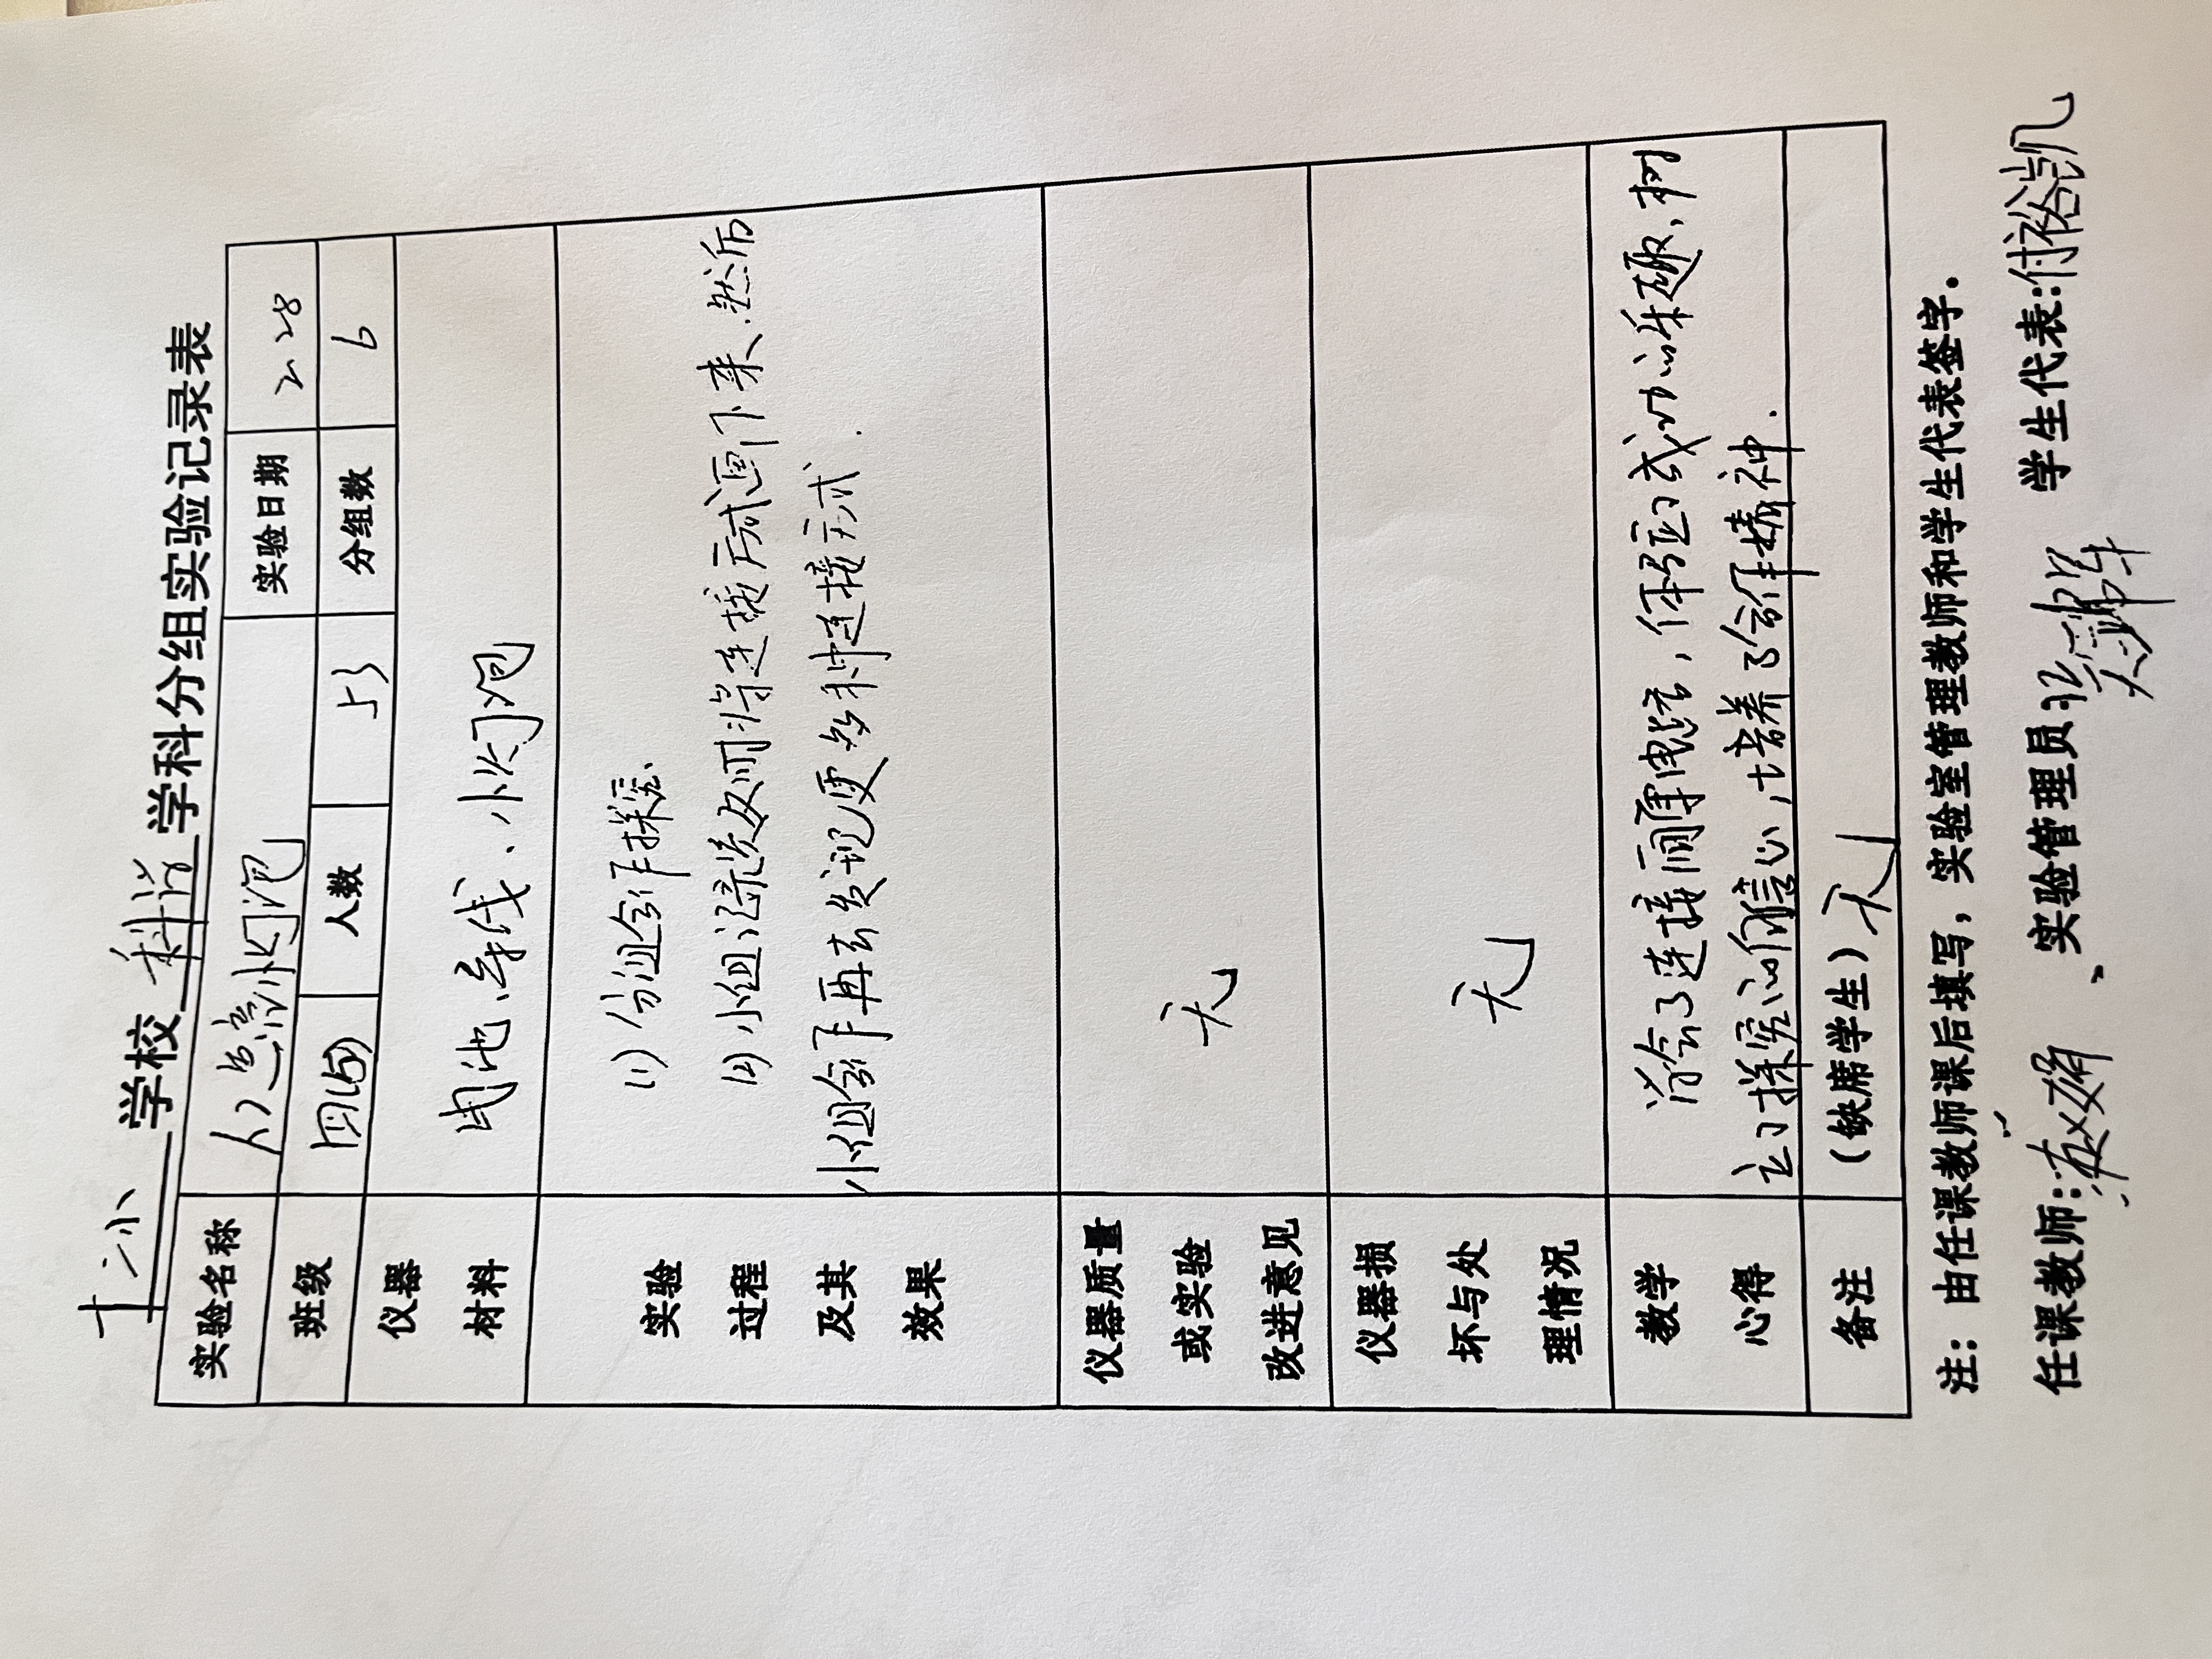 十二小 学校 科学 学科分组实验记录表
实验名称 点亮小灯泡 实验日期 2 28
班级 四(5) 人数 53 分组数 6
仪器材料 电池、导线、小灯泡
实验过程及其效果
(1) 分组合作探究.
(2) 小组派发如何将连接方式画下来、然后
小组合作再去发现更多种连接方式.
仪器质量或实验改进意见 无
仪器损坏与处理情况 无
教学心得
学会了连接简单电路,体验到成功的乐趣,树
立了探究的信心,培养了合作精神.
备注 (缺席学生) 无
注:由任课教师课后填写,实验室管理教师和学生代表签字。
任课教师: 实验管理员: 学生代表:付裕凯